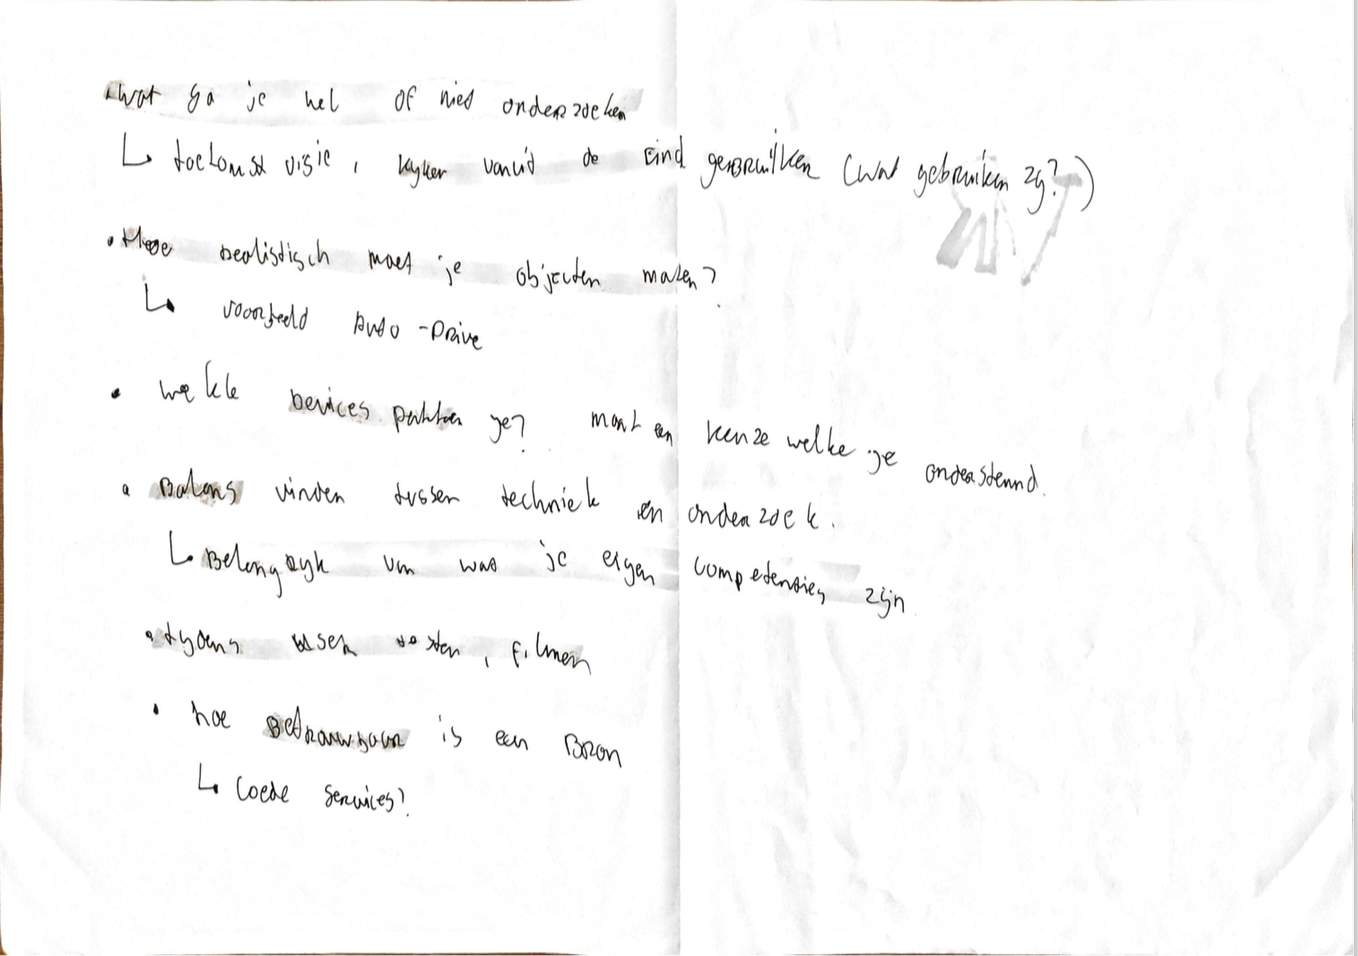 • wat ga je wel of niet onderzoeken
↳ toekomst visie, kyken vanuit de Eind gebruiken (wat gebruiken zy?)
• Hoe realistisch moet je objecten maken?
↳ voorbeeld Auto-Drive
• welke Devices pakken je? maak een keuze welke je ondersteund.
• Balans vinden tussen techniek en onderzoek.
↳ Belangryk um wat je eigen competenties zijn
• tydens user testen, filmen
• hoe Betrouwbaar is een Bron
↳ services?